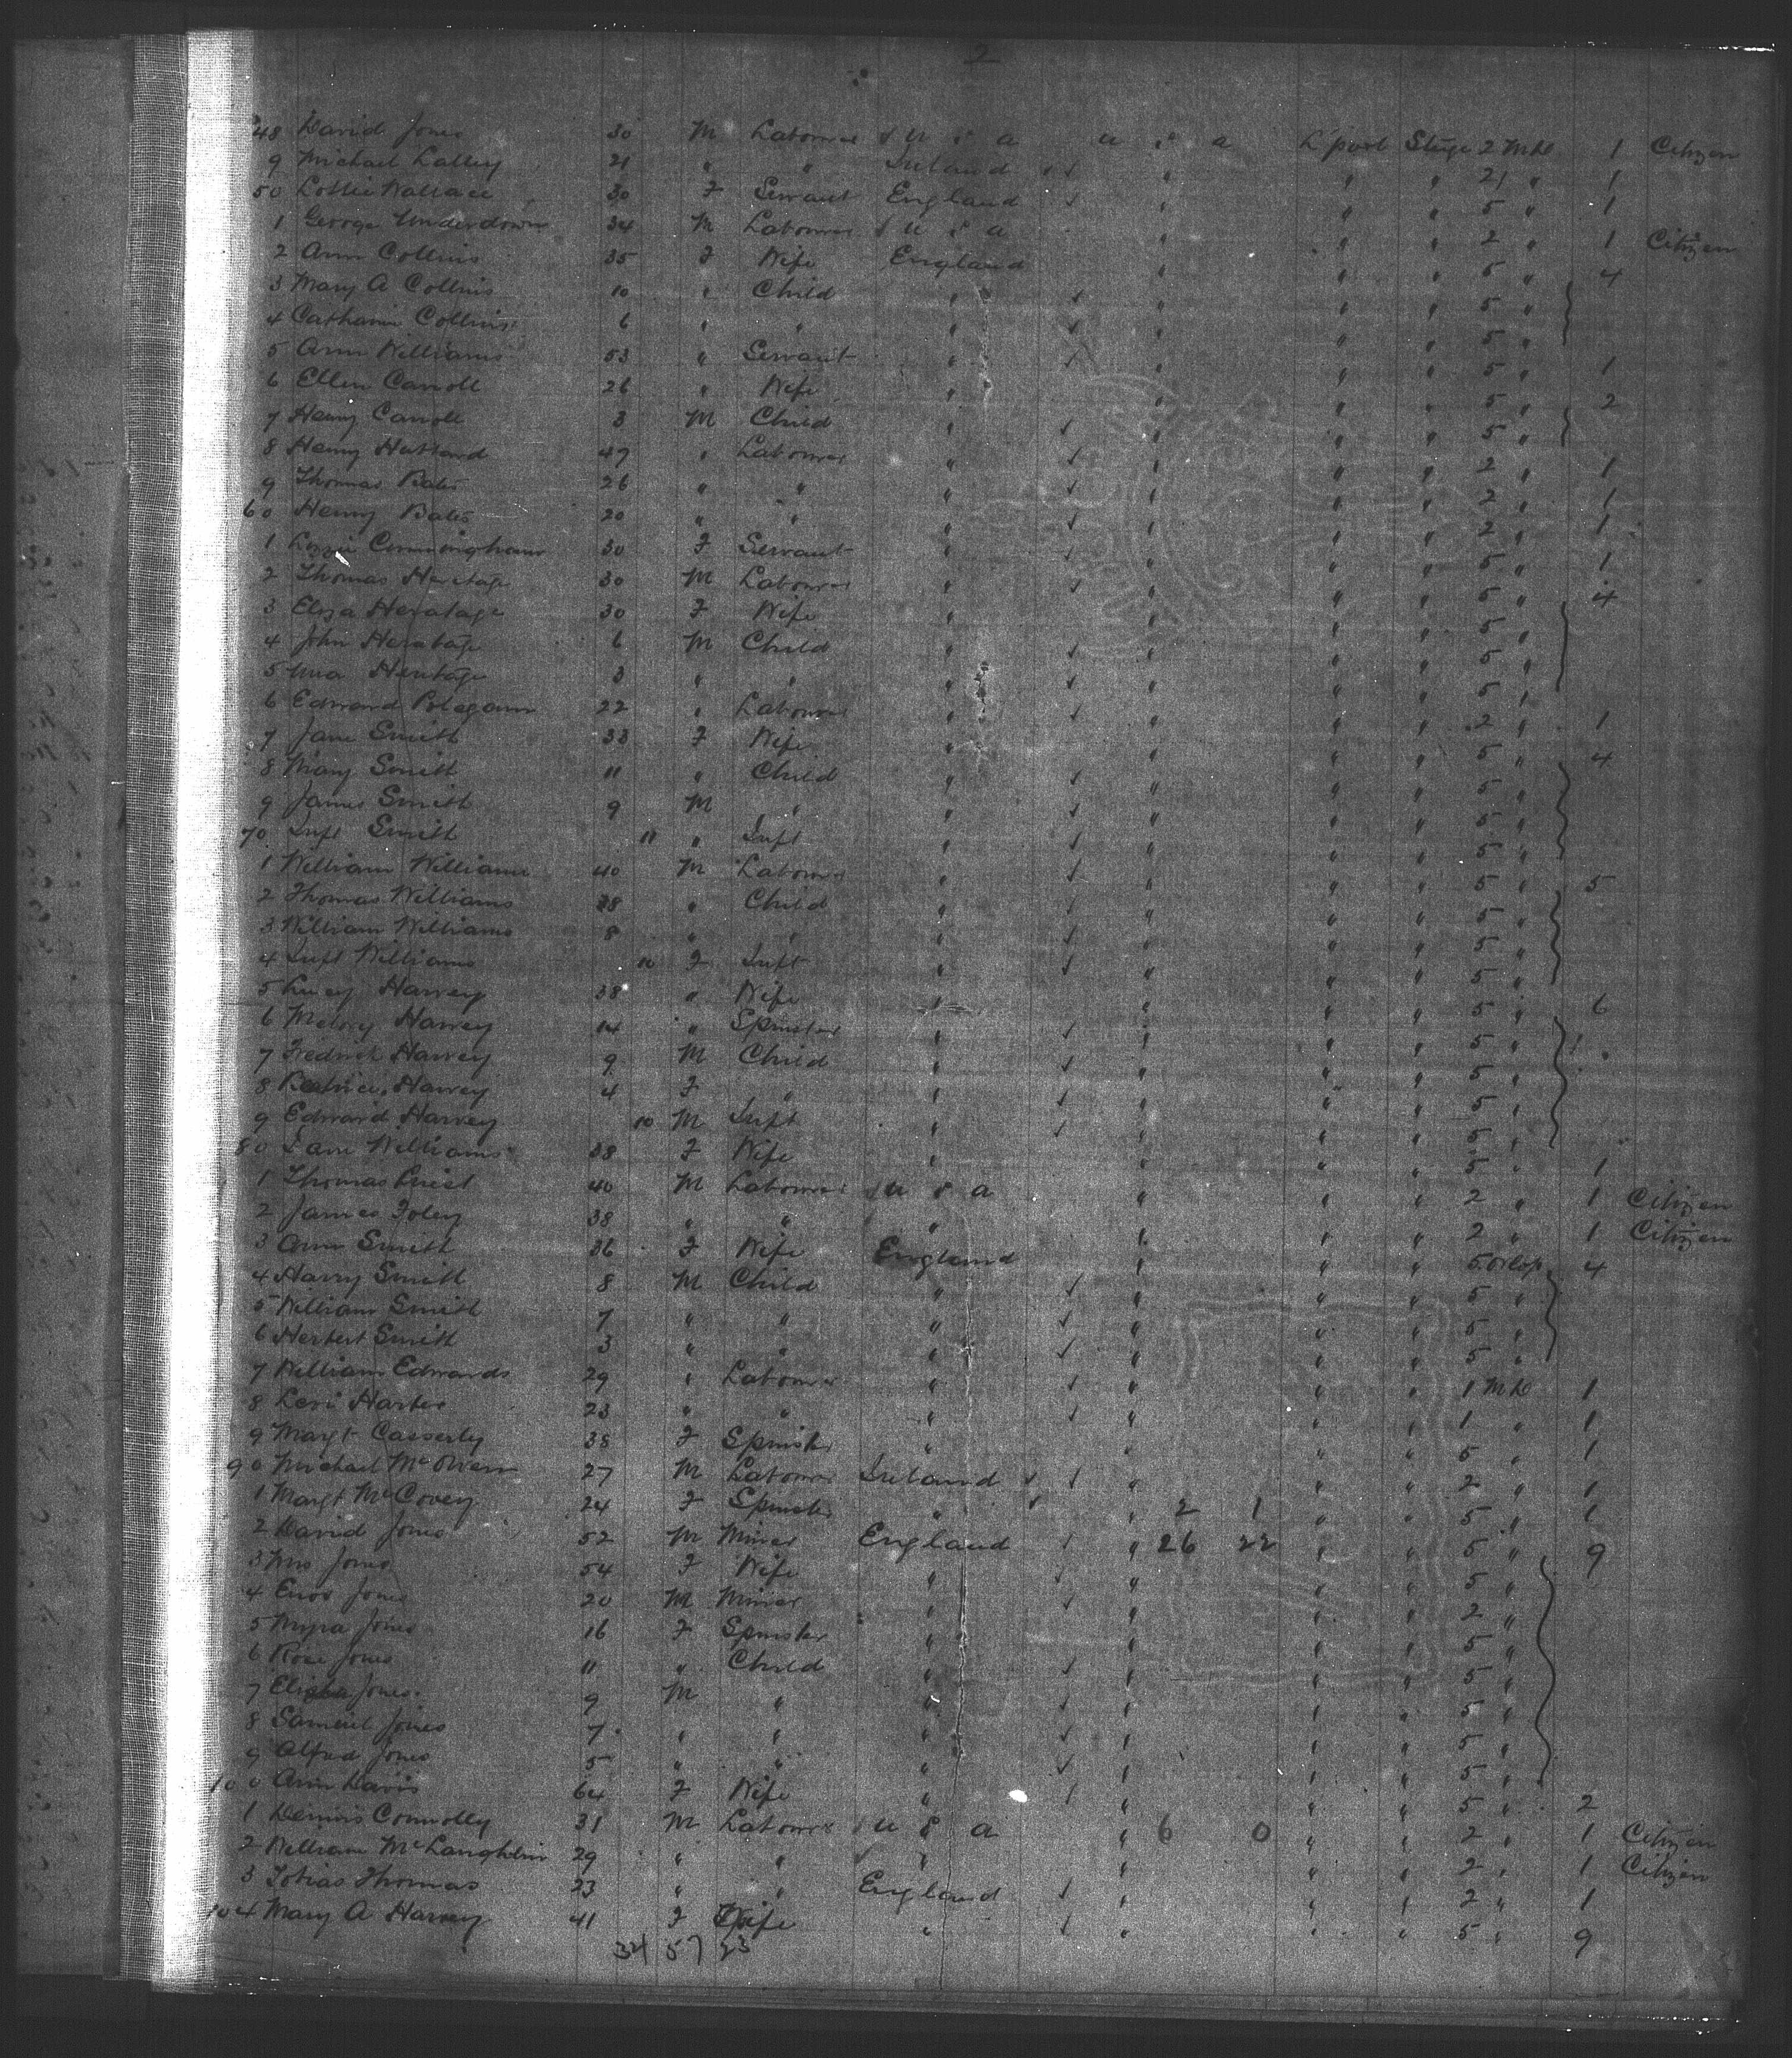 2
48 David Jones 30 M Labourer U S A U S A L'pool Stage 2 Mhd 1 Citizen
9 Michael Lalley 21 " " Ireland " " " 21 " 1
50 Lottie Wallace 30 F Servant England " " " 5 " 1
1 George Underdown 34 M Labourer U S A " " " 2 " 1 Citizen
2 Ann Collins 35 F Wife England " " " 5 " 4
3 Mary A Collins 10 " Child " " " " 5 "
4 Catharin Collins 6 " " " " " " 5 "
5 Ann Williams 53 " Servant " " " " 5 " 1
6 Ellen Carroll 26 " Wife " " " " 5 " 2
7 Henry Carroll 3 M Child " " " " 5 "
8 Henry Hubbard 47 " Labourer " " " " 2 " 1
9 Thomas Bates 26 " " " " " " 2 " 1
60 Henry Bates 20 " " " " " " 2 " 1
1 Lizzie Cunningham 30 F Servant " " " " 5 " 1
2 Thomas Heritage 30 M Labourer " " " " 5 " 4
3 Eliza Heratage 30 F Wife " " " " 5 "
4 John Heratage 6 M Child " " " " 5 "
5 Una Heritage 3 " " " " " " 5 "
6 Edward 22 " Labourer " " " " 2 " 1
7 Jane Smith 33 F Wife " " " " 5 " 4
8 Mary Smith 11 " Child " " " " 5 "
9 James Smith 9 M " " " " " 5 "
70 Inft Smith 11 " Inft " " " " 5 "
1 William Williams 40 M Labourer " " " " 5 " 5
2 Thomas Williams " Child " " " " 5 "
3 William Williams 8 " " " " " " 5 "
4 Inft Williams 10 F Inft " " " " 5 "
5 Lucy Harvey 38 " Wife " " " " 5 " 6
6 Harvey 14 " Spinster " " " " 5 "
7 Fredrick Harvey 9 M Child " " " " 5 "
8 Beatrice Harvey 4 F " " " " " 5 "
9 Edward Harvey 10 M Inft " " " " 5 "
80 Jane Williams 38 F Wife " " " " 5 " 1
1 Thomas 40 M Labourer U S A " " " 2 " 1 Citizen
2 James Foley 38 " " " " " " 2 " 1 Citizen
3 Ann Smith 36 F Wife England " " " 5 Orlop 4
4 Harry Smith 8 M Child " " " " 5 "
5 William Smith 7 " " " " " " 5 "
6 Herbert Smith 3 " " " " " " 5 "
7 William Edwards 29 " Labourer " " " " 1 Mhd 1
8 Levi 23 " " " " " " 1 " 1
9 Margt Casserly 38 F Spinster " " " " 5 " 1
90 Michael 27 M Labourer Ireland " " " 2 " 1
1 Margt McCovey 24 F Spinster " 2 1 " " 5 " 1
2 David Jones 52 M Miner England " 26 22 " " 5 " 9
3 Mrs Jones 54 F Wife " " " " 5 "
4 Enos Jones 20 M Miner " " " " 2 "
5 Myra Jones 16 F Spinster " " " " 5 "
6 Rose Jones 11 " Child " " " " 5 "
7 Elisha Jones 9 M " " " " " 5 "
8 Samuel Jones 7 " " " " " " 5 "
9 Alfred Jones 5 " " " " " " 5 "
100 Ann Davis 64 F Wife " " " " 5 " 2
1 Dennis Connolly 31 M Labourer U S A " 6 0 " " 2 " 1 Citizen
2 William McLaughlin 29 " " " " " " 2 " 1 Citizen
3 Tobias Thomas 23 " " England " " " 2 " 1
104 Mary A Harvey 41 F Wife " " " " 5 " 9
34 57 23